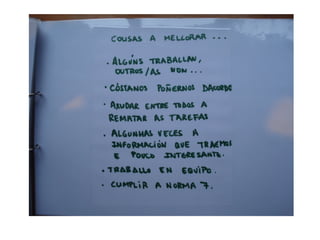 COUSAS A MELLORAR ...
· ALGÚNS TRABALLAN,
OUTROS/AS NON ...
· CÓSTANOS POÑERNOS DACORDO
· AXUDAR ENTRE TODOS A
REMATAR AS TAREFAS
· ALGUNHAS VECES A
INFORMACIÓN QUE TRAEMOS
E POUCO INTERESANTE.
· TRABALLO EN EQUIPO.
· CUMPLIR A NORMA 7.